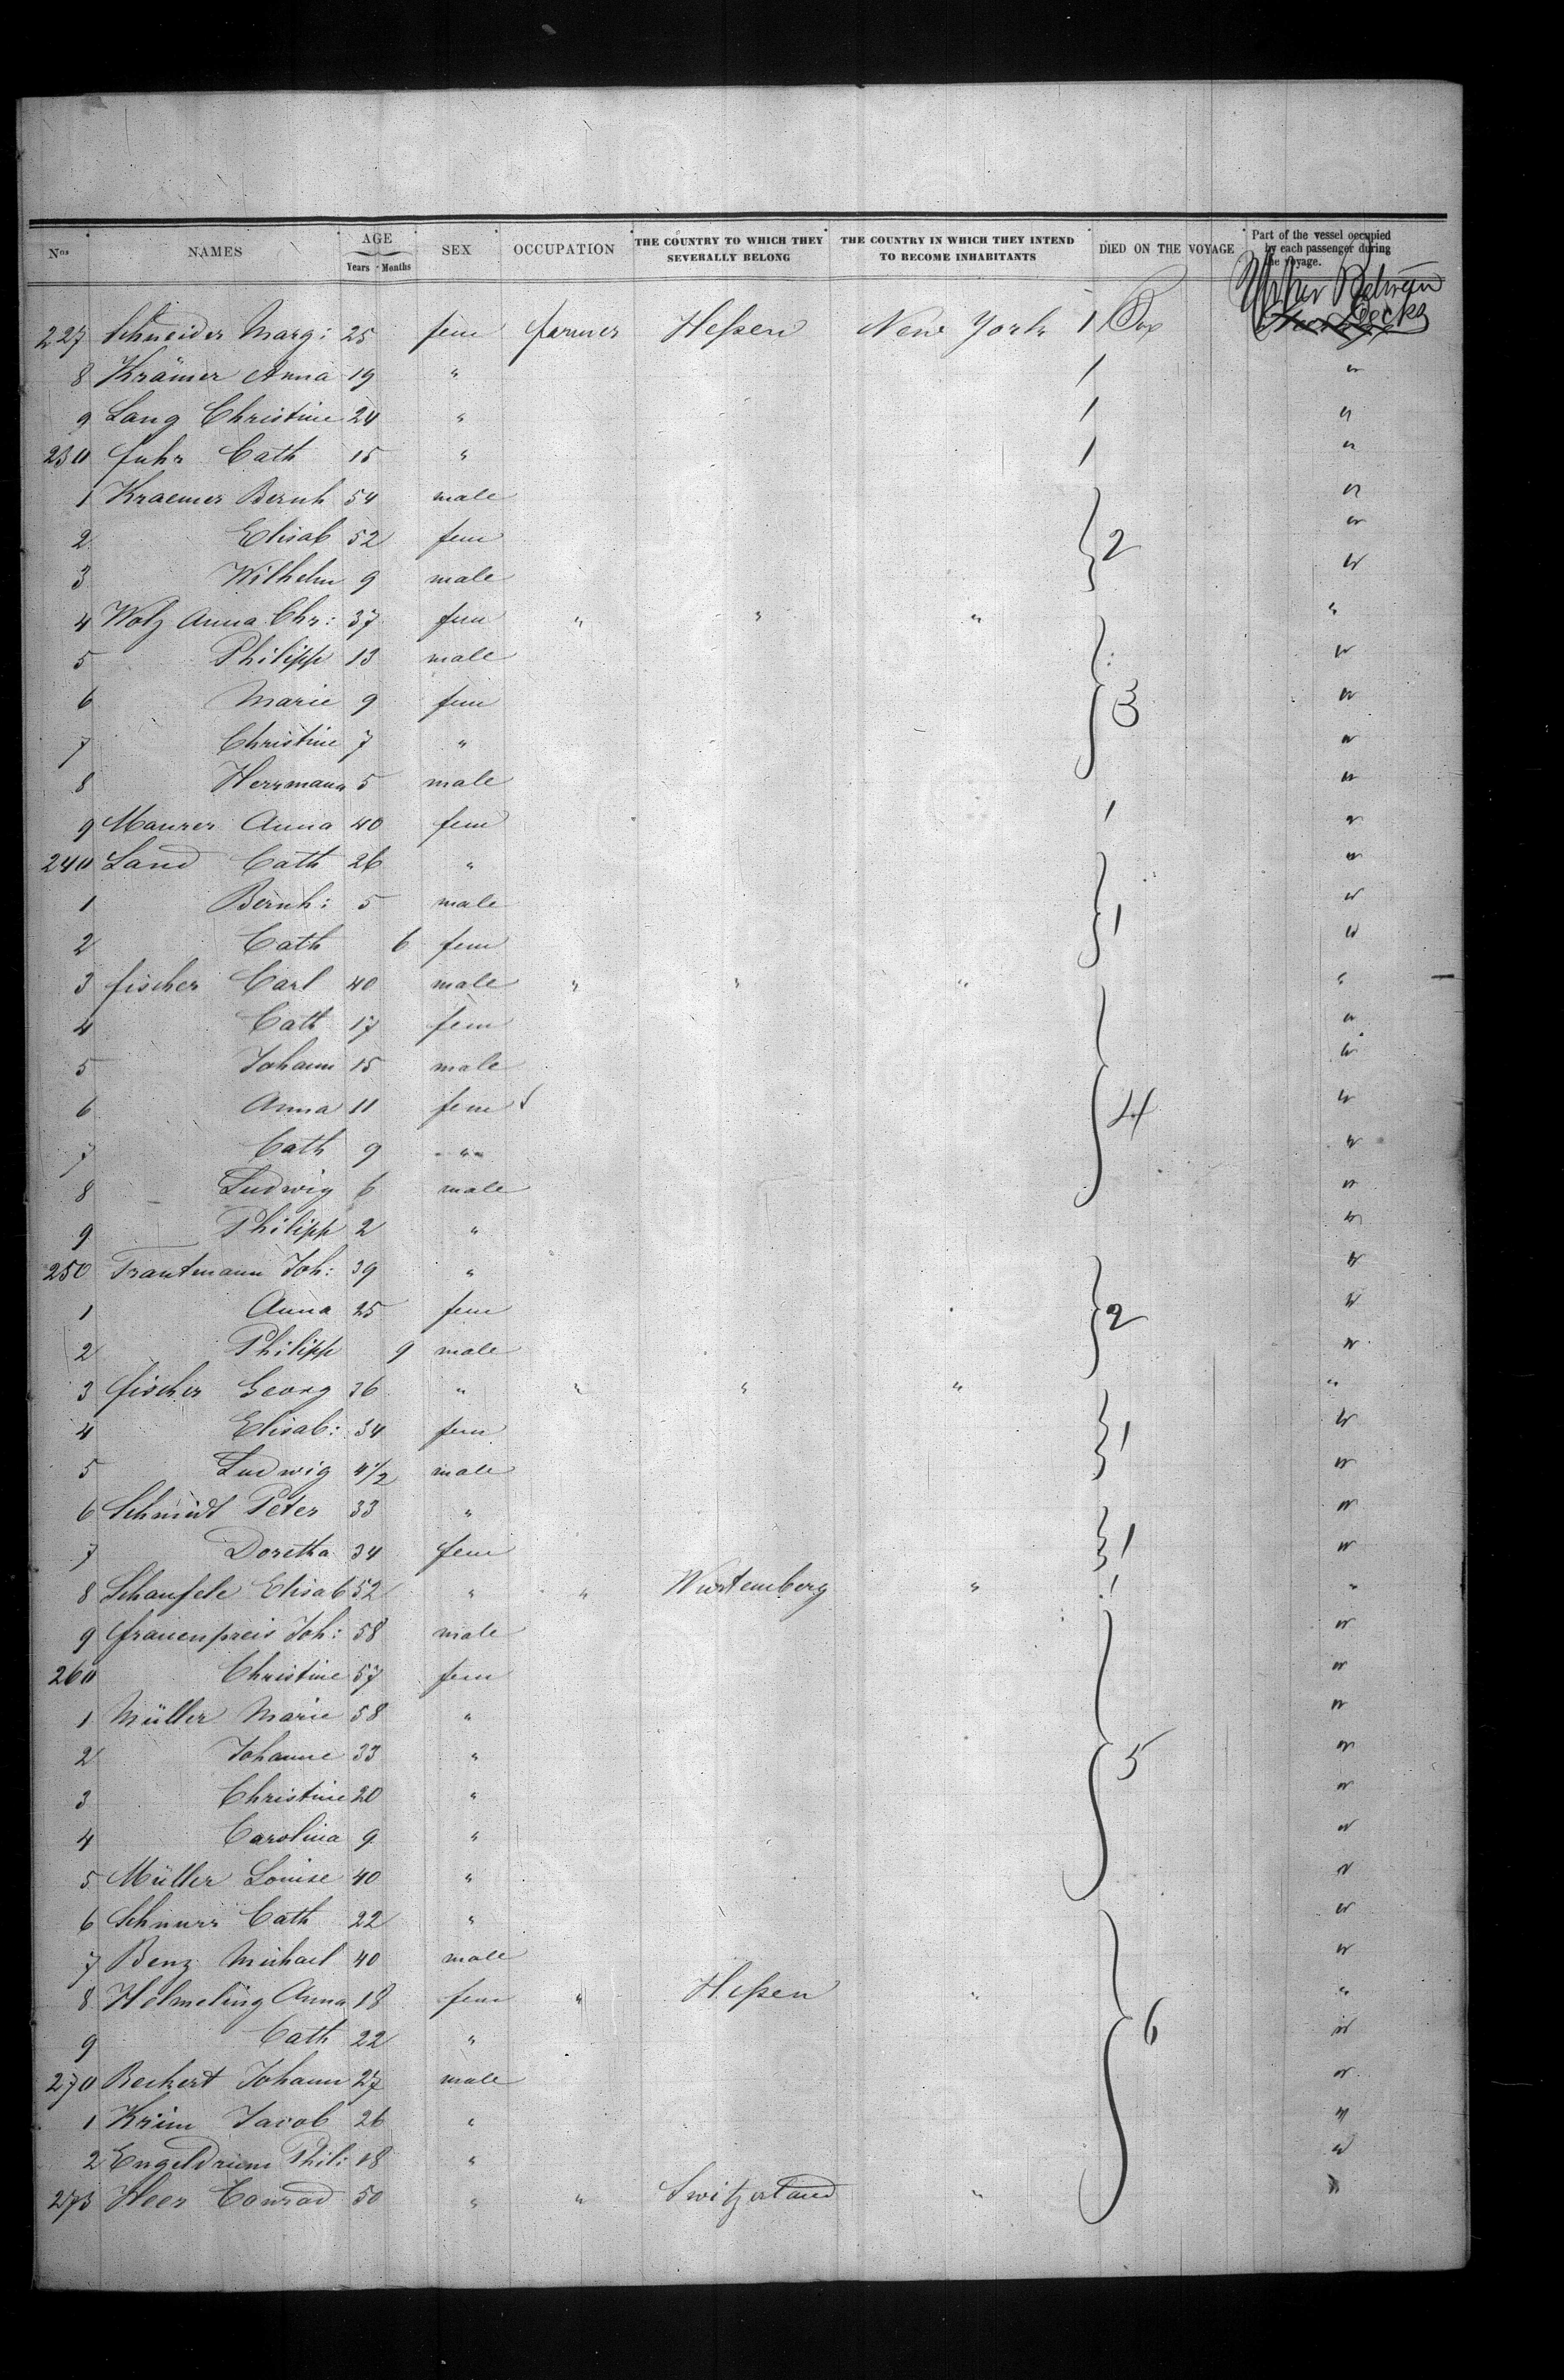 Nos NAMES AGE Years Months SEX OCCUPATION THE COUNTRY TO WHICH THEY SEVERALLY BELONG THE COUNTRY IN WHICH THEY INTEND TO BECOME INHABITANTS DIED ON THE VOYAGE Part of the vessel occupied by each passenger during the voyage.
Upper Between Decks
227 Schneider Marg: 25 fem farmer Heßen New York 1 Box
8 Krämer Anna 19 " 1 "
9 Lang Christine 24 " 1 "
230 Fuhr Cath 15 " 1 "
1 Kraemer Bernh 54 male "
2 Elisab 52 fem 2 "
3 Wilhelm 9 male "
4 Wolz Anna Chr: 37 fem " " " "
5 Philipp 13 male "
6 Marie 9 fem 3 "
7 Christine 7 " "
8 Herrmann 5 male "
9 Maurer Anna 40 fem 1 "
240 Land Cath 26 " "
1 Bernh: 5 male 1 "
2 Cath 6 fem "
3 Fischer Carl 40 male " " " "
4 Cath 17 fem "
5 Johann 15 male "
6 Anna 11 fem 4 "
7 Cath 9 " "
8 Ludwig 6 male "
9 Philipp 2 " "
250 Trautmann Joh: 39 " "
1 Anna 25 fem 2 "
2 Philipp 9 male "
3 Fischer Georg 36 " " " " "
4 Elisab: 34 fem 1 "
5 Ludwig 4 1/2 male "
6 Schmidt Peter 33 " "
7 Doretha 34 fem 1 "
8 Schaufele Elisab 52 " " Wurtemberg " 1 "
9 Frauenpreis Joh: 58 male "
260 Christine 57 fem "
1 Müller Marie 58 " "
2 Johanne 33 " 5 "
3 Christine 20 " "
4 Carolina 9 " "
5 Müller Louise 40 " "
6 Schnurr Cath 22 " "
7 Benz Michael 40 male "
8 Helmeling Anna 18 fem " Heßen " "
9 Cath 22 " 6 "
270 Beckert Johann 27 male "
1 Krim Jacob 26 " "
2 Engeldrum Phil: 18 " "
273 Heer Conrad 50 " " Switzerland " "